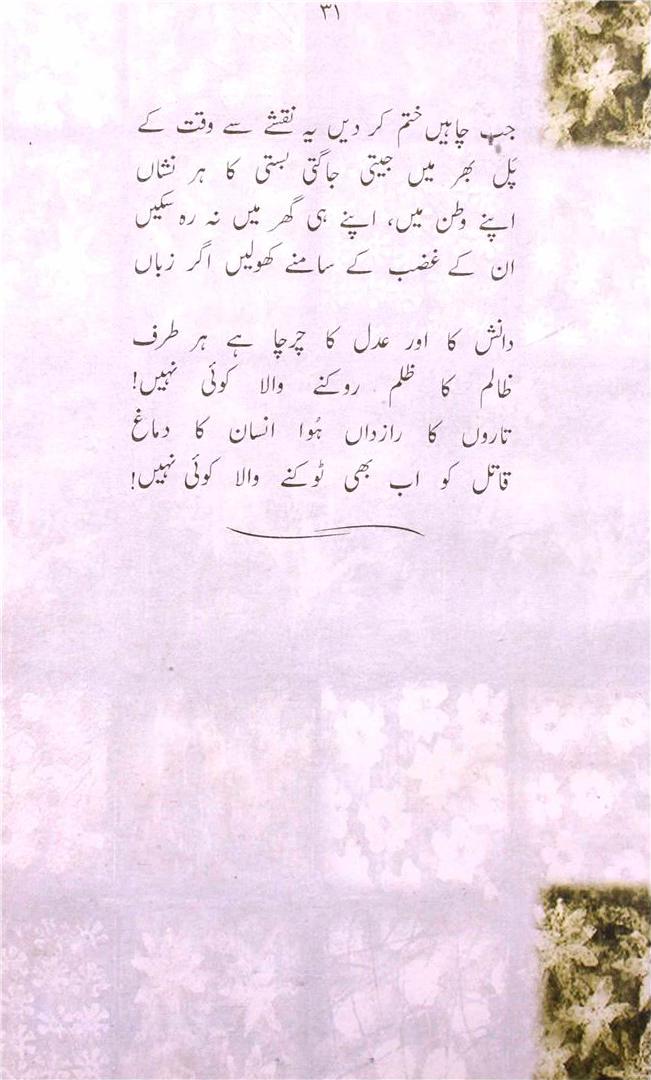 ۳۱
جب چاہیں ختم کر دیں یہ نقشے سے وقت کے
پَل بھر میں جیتی جاگتی بستی کا ہر نشاں
اپنے وطن میں، اپنے ہی گھر میں نہ رہ سکیں
ان کے غضب کے سامنے کھولیں اگر زباں
دانش کا اور عدل کا چرچا ہے ہر طرف
ظالم کا ظلم روکنے والا کوئی نہیں!
تاروں کا رازداں ہُوا انسان کا دماغ
قاتل کو اب بھی ٹوکنے والا کوئی نہیں!